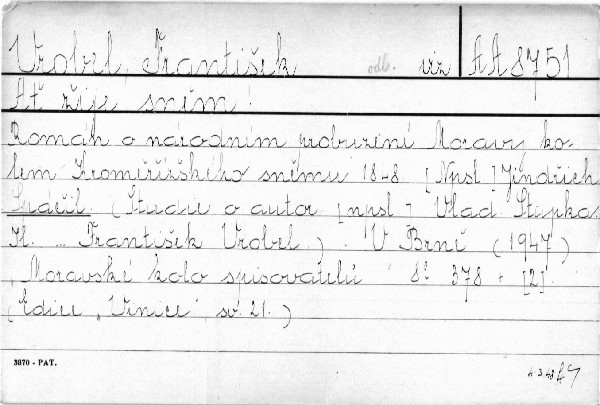 Vrobel, František odb. viz AA 8751
Ať žije sněm!
Román o národním probuzení Moravy ko-
lem Kroměřížského sněmu 18-8. [Npsl.] Jindřich
Spáčil. (Studie o autor. [npsl.] Vlad. Štipka:
Kl. ... František Vrobel.) V Brně (1947)
"Moravské kolo spisovatelů" 8° 378 + [2].
(Edice "Vinice", sv. 21.)
3870 - PAT.